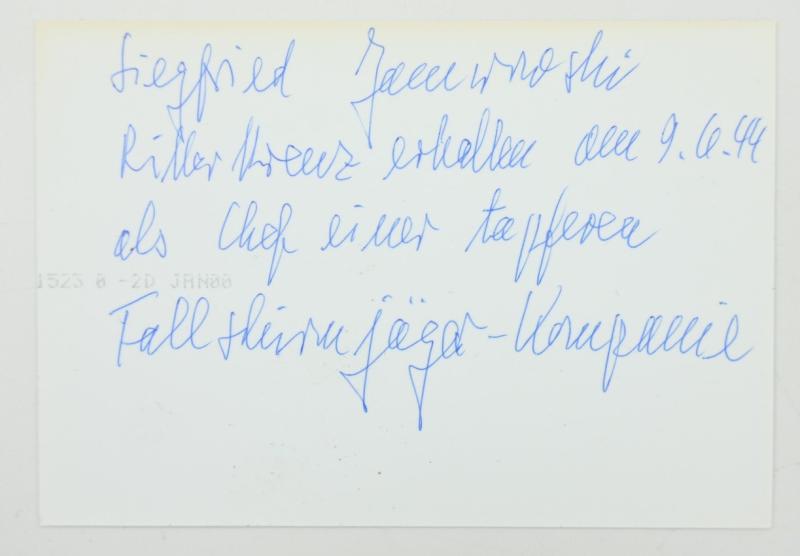 Siegfried Jamrowski
Ritterkreuz erhalten am 9.6.44
als Chef einer tapferen
1523 0 -2D JAN00
Fallschirmjäger-Kompanie